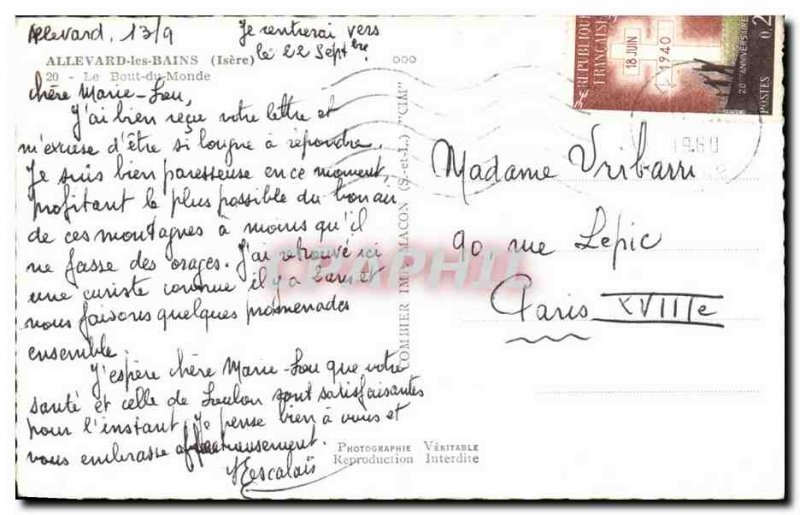 Allevard, 13/9
Je rentrerai vers
le 22 Septbre
ALLEVARD-les-BAINS (Isère)
20 - Le Bout-du-Monde
Chère Marie-Lou,
J'ai bien reçu votre lettre et
m'excuse d'être si longue à répondre.
Je suis bien paresseuse en ce moment,
profitant le plus possible du bon air
de ces montagnes à moins qu'il
ne fasse des orages. J'ai retrouvé ici
une curiste connue il y a 2 ans et
nous faisons quelques promenades
ensemble.
J'espère chère Marie-Lou que votre
santé et celle de Loulou sont satisfaisantes
pour l'instant. Je pense bien à vous et
vous embrasse affectueusement.
Escalaïs
COMBIER IMP. MACON (S.-et-L.) "CIM"
PHOTOGRAPHIE VÉRITABLE
Reproduction Interdite
RÉPUBLIQUE
FRANÇAISE
18 JUIN
1940
20e ANNIVERSAIRE
POSTES
0,2
1960
Madame Uribarri
90 rue Lepic
Paris XVIIIe
CPAPHIL